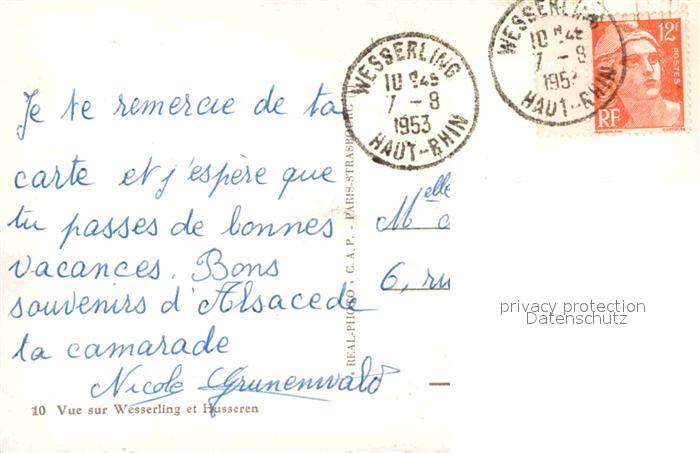 Je te remercie de ta
carte et j'espère que
tu passes de bonnes
vacances. Bons
souvenirs d'Alsace de
ta camarade
Nicole Grunenwald
10 Vue sur Wesserling et Husseren
REAL-PHOTO - C.A.P. - PARIS-STRASBOURG
WESSERLING
10 H45
7 - 8
1953
HAUT-RHIN
WESSERLING
10 H45
7 - 8
1953
HAUT-RHIN
12F
POSTES
RF
Melle
6, ru
privacy protection
Datenschutz